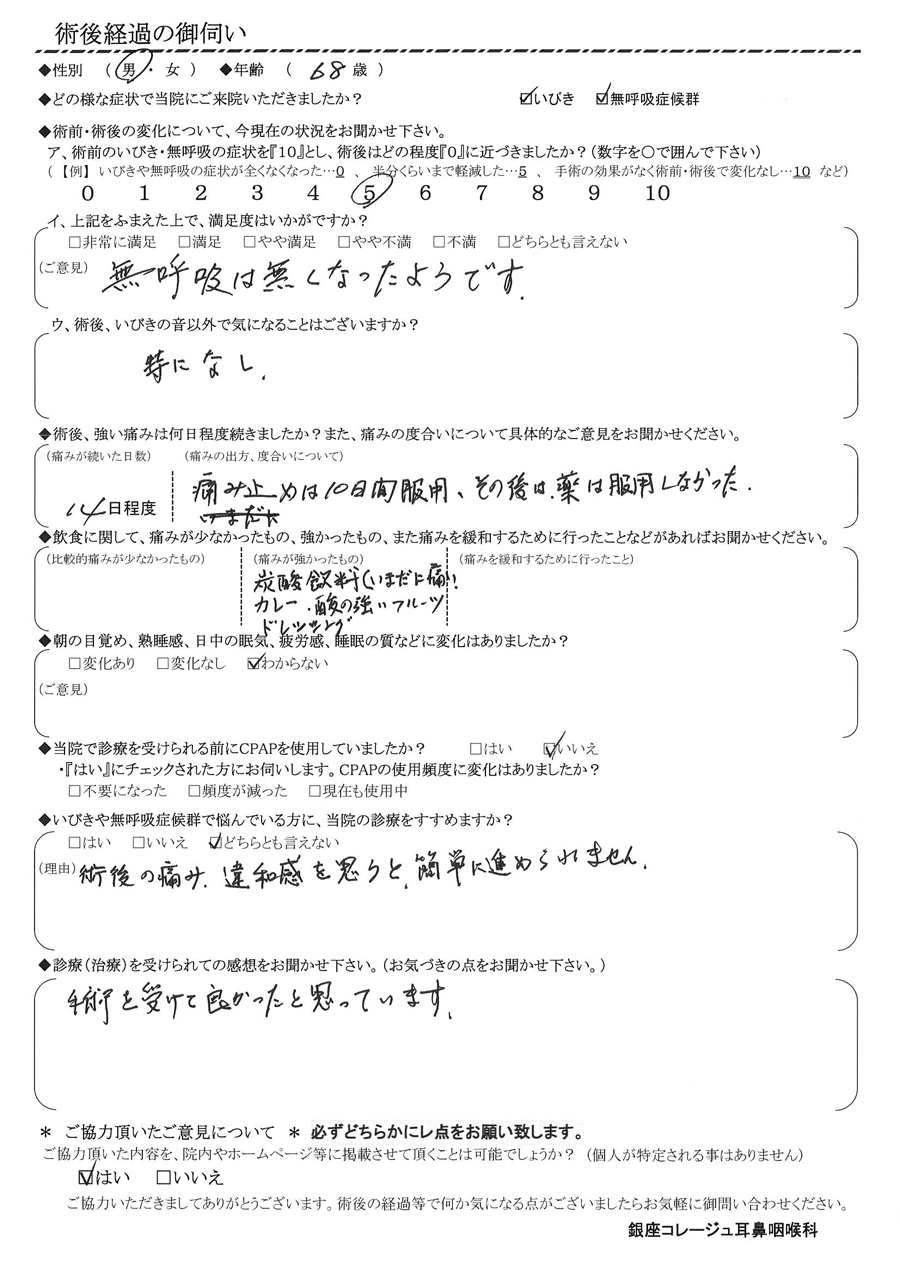 術後経過の御伺い
◆性別 ( 男 ・ 女 ) ◆年齢 ( 68 歳 )
◆どの様な症状で当院にご来院いただきましたか? ☑いびき ☑無呼吸症候群
◆術前・術後の変化について、今現在の状況をお聞かせ下さい。
ア、術前のいびき・無呼吸の症状を『10』とし、術後はどの程度『0』に近づきましたか?(数字を〇で囲んで下さい)
(【例】 いびきや無呼吸の症状が全くなくなった…0 、 半分くらいまで軽減した…5 、 手術の効果がなく術前・術後で変化なし…10 など)
0 1 2 3 4 5 6 7 8 9 10
イ、上記をふまえた上で、満足度はいかがですか?
□非常に満足 □満足 □やや満足 □やや不満 □不満 □どちらとも言えない
(ご意見) 無呼吸は無くなったようです.
ウ、術後、いびきの音以外で気になることはございますか?
特になし.
◆術後、強い痛みは何日程度続きましたか?また、痛みの度合いについて具体的なご意見をお聞かせください。
(痛みが続いた日数) (痛みの出方、度合いについて)
痛み止めは10日間服用、その後は、薬は服用しなかった.
14日程度 いまだに
◆飲食に関して、痛みが少なかったもの、強かったもの、また痛みを緩和するために行ったことなどがあればお聞かせください。
(比較的痛みが少なかったもの) (痛みが強かったもの) (痛みを緩和するために行ったこと)
炭酸飲料(いまだに痛い)
カレー・酸の強いフルーツ
ドレッシング
◆朝の目覚め、熟睡感、日中の眠気、疲労感、睡眠の質などに変化はありましたか?
□変化あり □変化なし ☑わからない
(ご意見)
◆当院で診療を受けられる前にCPAPを使用していましたか? □はい ☑いいえ
・『はい』にチェックされた方にお伺いします。CPAPの使用頻度に変化はありましたか?
□不要になった □頻度が減った □現在も使用中
◆いびきや無呼吸症候群で悩んでいる方に、当院の診療をすすめますか?
□はい □いいえ ☑どちらとも言えない
(理由) 術後の痛み、違和感を思うと、簡単に進められません.
◆診療(治療)を受けられての感想をお聞かせ下さい。(お気づきの点をお聞かせ下さい。)
手術を受けて良かったと思っています.
* ご協力頂いたご意見について * 必ずどちらかにレ点をお願い致します。
ご協力頂いた内容を、院内やホームページ等に掲載させて頂くことは可能でしょうか? (個人が特定される事はありません)
☑はい □いいえ
ご協力いただきましてありがとうございます。術後の経過等で何か気になる点がございましたらお気軽に御問い合わせください。
銀座コレージュ耳鼻咽喉科